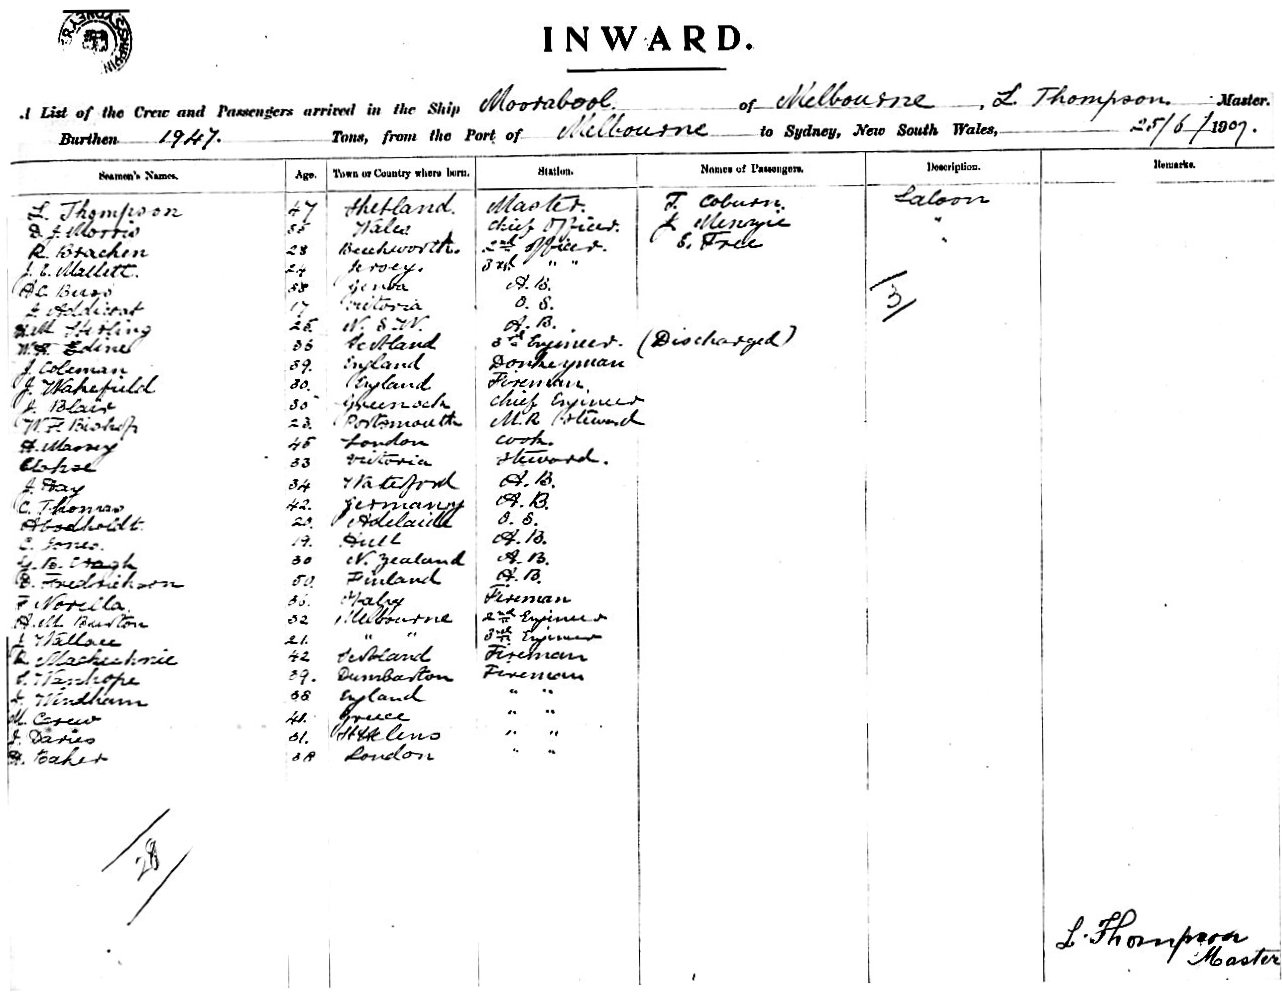 INWARD.
A List of the Crew and Passengers arrived in the Ship Moorabool. of Melbourne, L. Thompson. Master.
Burthen 1947. Tons, from the Port of Melbourne to Sydney, New South Wales, 25/6/1907.
Seamen's Names. Age. Town or Country where born. Station. Names of Passengers. Description. Remarks.
L. Thompson 47 Shetland. Master. F. Coburn. Saloon
D. J. Morris Wales Chief Officer. J. Menzie "
R. Bracken 28 Beechworth. 2nd Officer. E. Free "
J. E. Mallett. 24 Jersey. 3rd " "
38 Genoa A. B.
J. 17 Victoria O. S. 3
Stirling 25 N. S. W. A. B.
W. 36 Scotland 3rd Engineer. (Discharged)
J. Coleman 39. England Donkeyman
J. Wakefield 30. England Fireman.
J. Blair 35 Greenock Chief Engineer
W. F. Bishop 23. Portsmouth M. R. Steward
H. Massey 45 London Cook.
33 Victoria Steward.
J. Hay 34 Waterford A. B.
C. Thomas 42. Germany A. B.
Adelaide O. S.
C. Jones. 19. Hull A. B.
30 N. Zealand A. B.
Fredrickson 50. Finland A. B.
F. Norella. 36. Italy Fireman
A. M. Burton 32 Melbourne 2nd Engineer
J. Wallace 21. " " 3rd Engineer
R. Mackechnie 42 Scotland Fireman
Wanhope 39. Dumbarton Fireman
J. Windham 38 England " "
M. Carew 41. Greece " "
J. Davies 31. St Helens " "
H. Baker 38 London " "
28
L. Thompson
Master